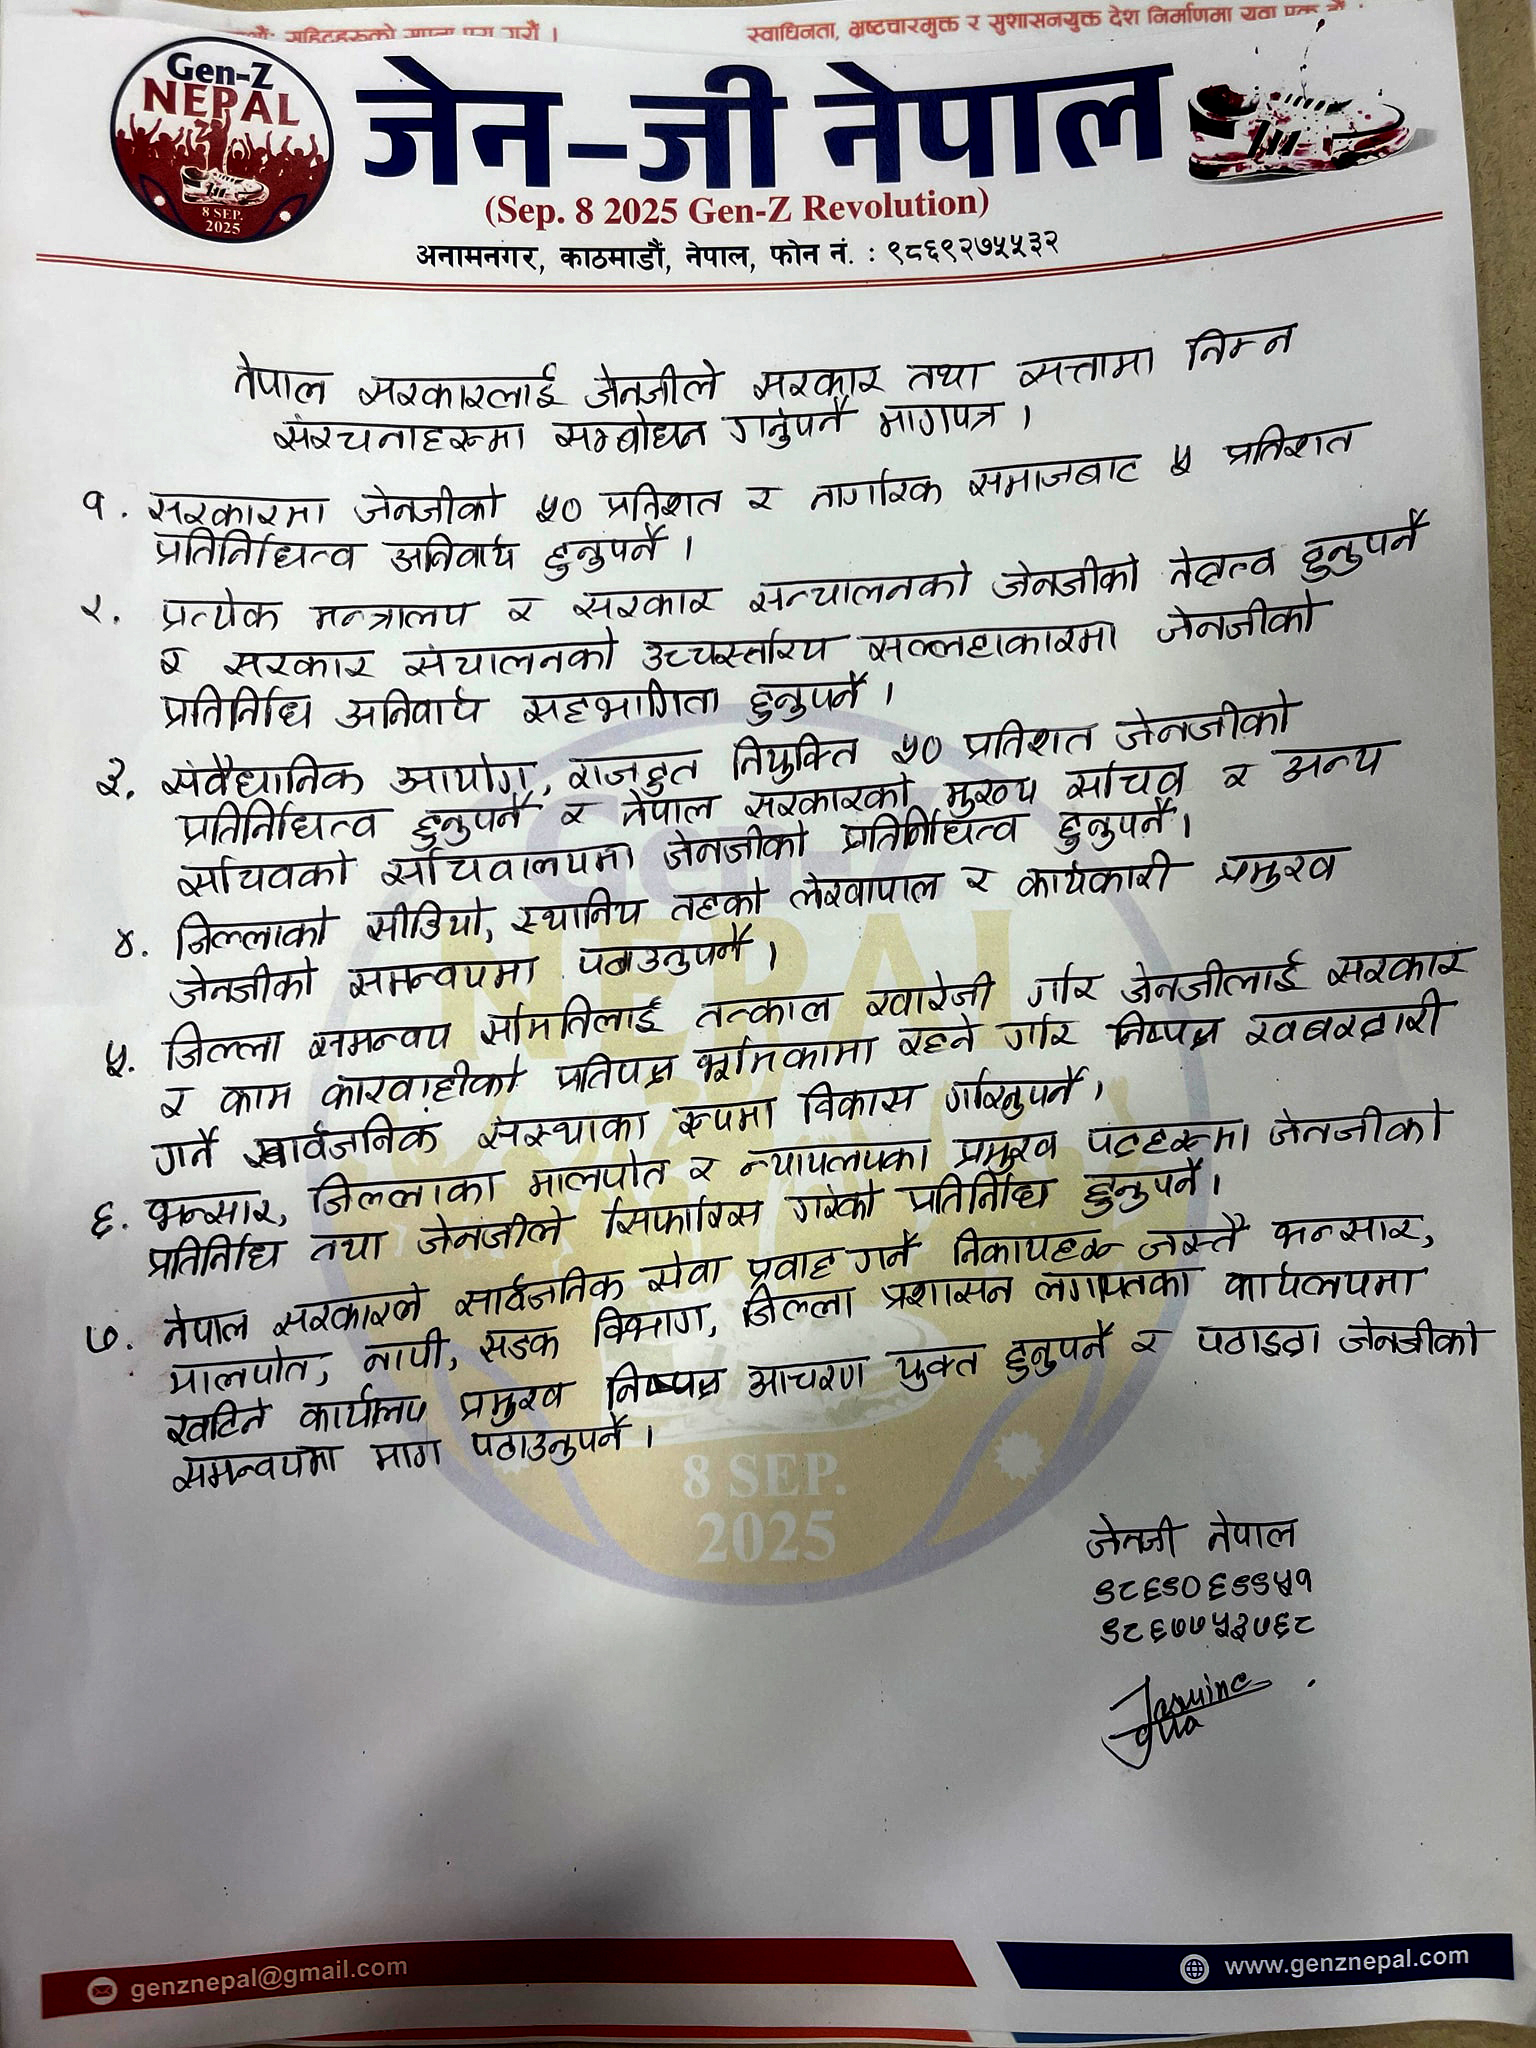 स्वाधिनता, भ्रष्टचारमुक्त र सुशासनयुक्त देश निर्माणमा
Gen-Z
NEPAL
8 SEP.
2025
जेन-जी नेपाल
(Sep. 8 2025 Gen-Z Revolution)
अनामनगर, काठमाडौं, नेपाल, फोन नं. : ९८६९२७५५३२
नेपाल सरकारलाई जेनजीले सरकार तथा सत्तामा निम्न
संरचनाहरुमा सम्बोधन गर्नुपर्ने मागपत्र ।
१. सरकारमा जेनजीको ५० प्रतिशत र नागरिक समाजबाट ५ प्रतिशत
प्रतिनिधित्व अनिवार्य हुनुपर्ने ।
२. प्रत्येक मन्त्रालय र सरकार सन्चालनको जेनजीको नेतृत्व हुनुपर्ने
र सरकार संचालनको उच्चस्तरिय सल्लहाकारमा जेनजीको
प्रतिनिधि अनिवार्य सहभागिता हुनुपर्ने ।
३. संवैधानिक आयोग, राजदुत नियुक्ति ५० प्रतिशत जेनजीको
प्रतिनिधित्व हुनुपर्ने र नेपाल सरकारको मुख्य सचिव र अन्य
सचिवको सचिवालयमा जेनजीको प्रतिनिधित्व हुनुपर्ने।
४. जिल्लाको सीडियो, स्थानिय तहको लेखापाल र कार्यकारी प्रमुख
जेनजीको समन्वयमा पठाउनुपर्ने ।
५. जिल्ला समन्वय समितिलाई तत्काल खारेजी गरि जेनजीलाई सरकार
र काम कारवाहीको प्रतिपक्ष भूमिकामा रहने गरि निष्पक्ष खबरदारी
गर्ने सार्वजनिक संस्थाका रुपमा विकास गरिनुपर्ने ।
६. भन्सार, जिल्लाका मालपोत र न्यायलयका प्रमुख पदहरुमा जेनजीको
प्रतिनिधि तथा जेनजीले सिफारिस गरेको प्रतिनिधि हुनुपर्ने ।
७. नेपाल सरकारले सार्वजनिक सेवा प्रवाह गर्ने निकायहरु जस्तै भन्सार,
मालपोत, नापी, सडक विभाग, जिल्ला प्रशासन लगायतका कार्यलयमा
खटिने कार्यालय प्रमुख निष्पक्ष आचरण युक्त हुनुपर्ने र पठाइदा जेनजीको
समन्वयमा माग पठाउनुपर्ने ।
8 SEP.
2025
जेनजी नेपाल
९८६९०६९९५१
९८६७७५३७६८
Jasmine
Ojha
genznepal@gmail.com
www.genznepal.com